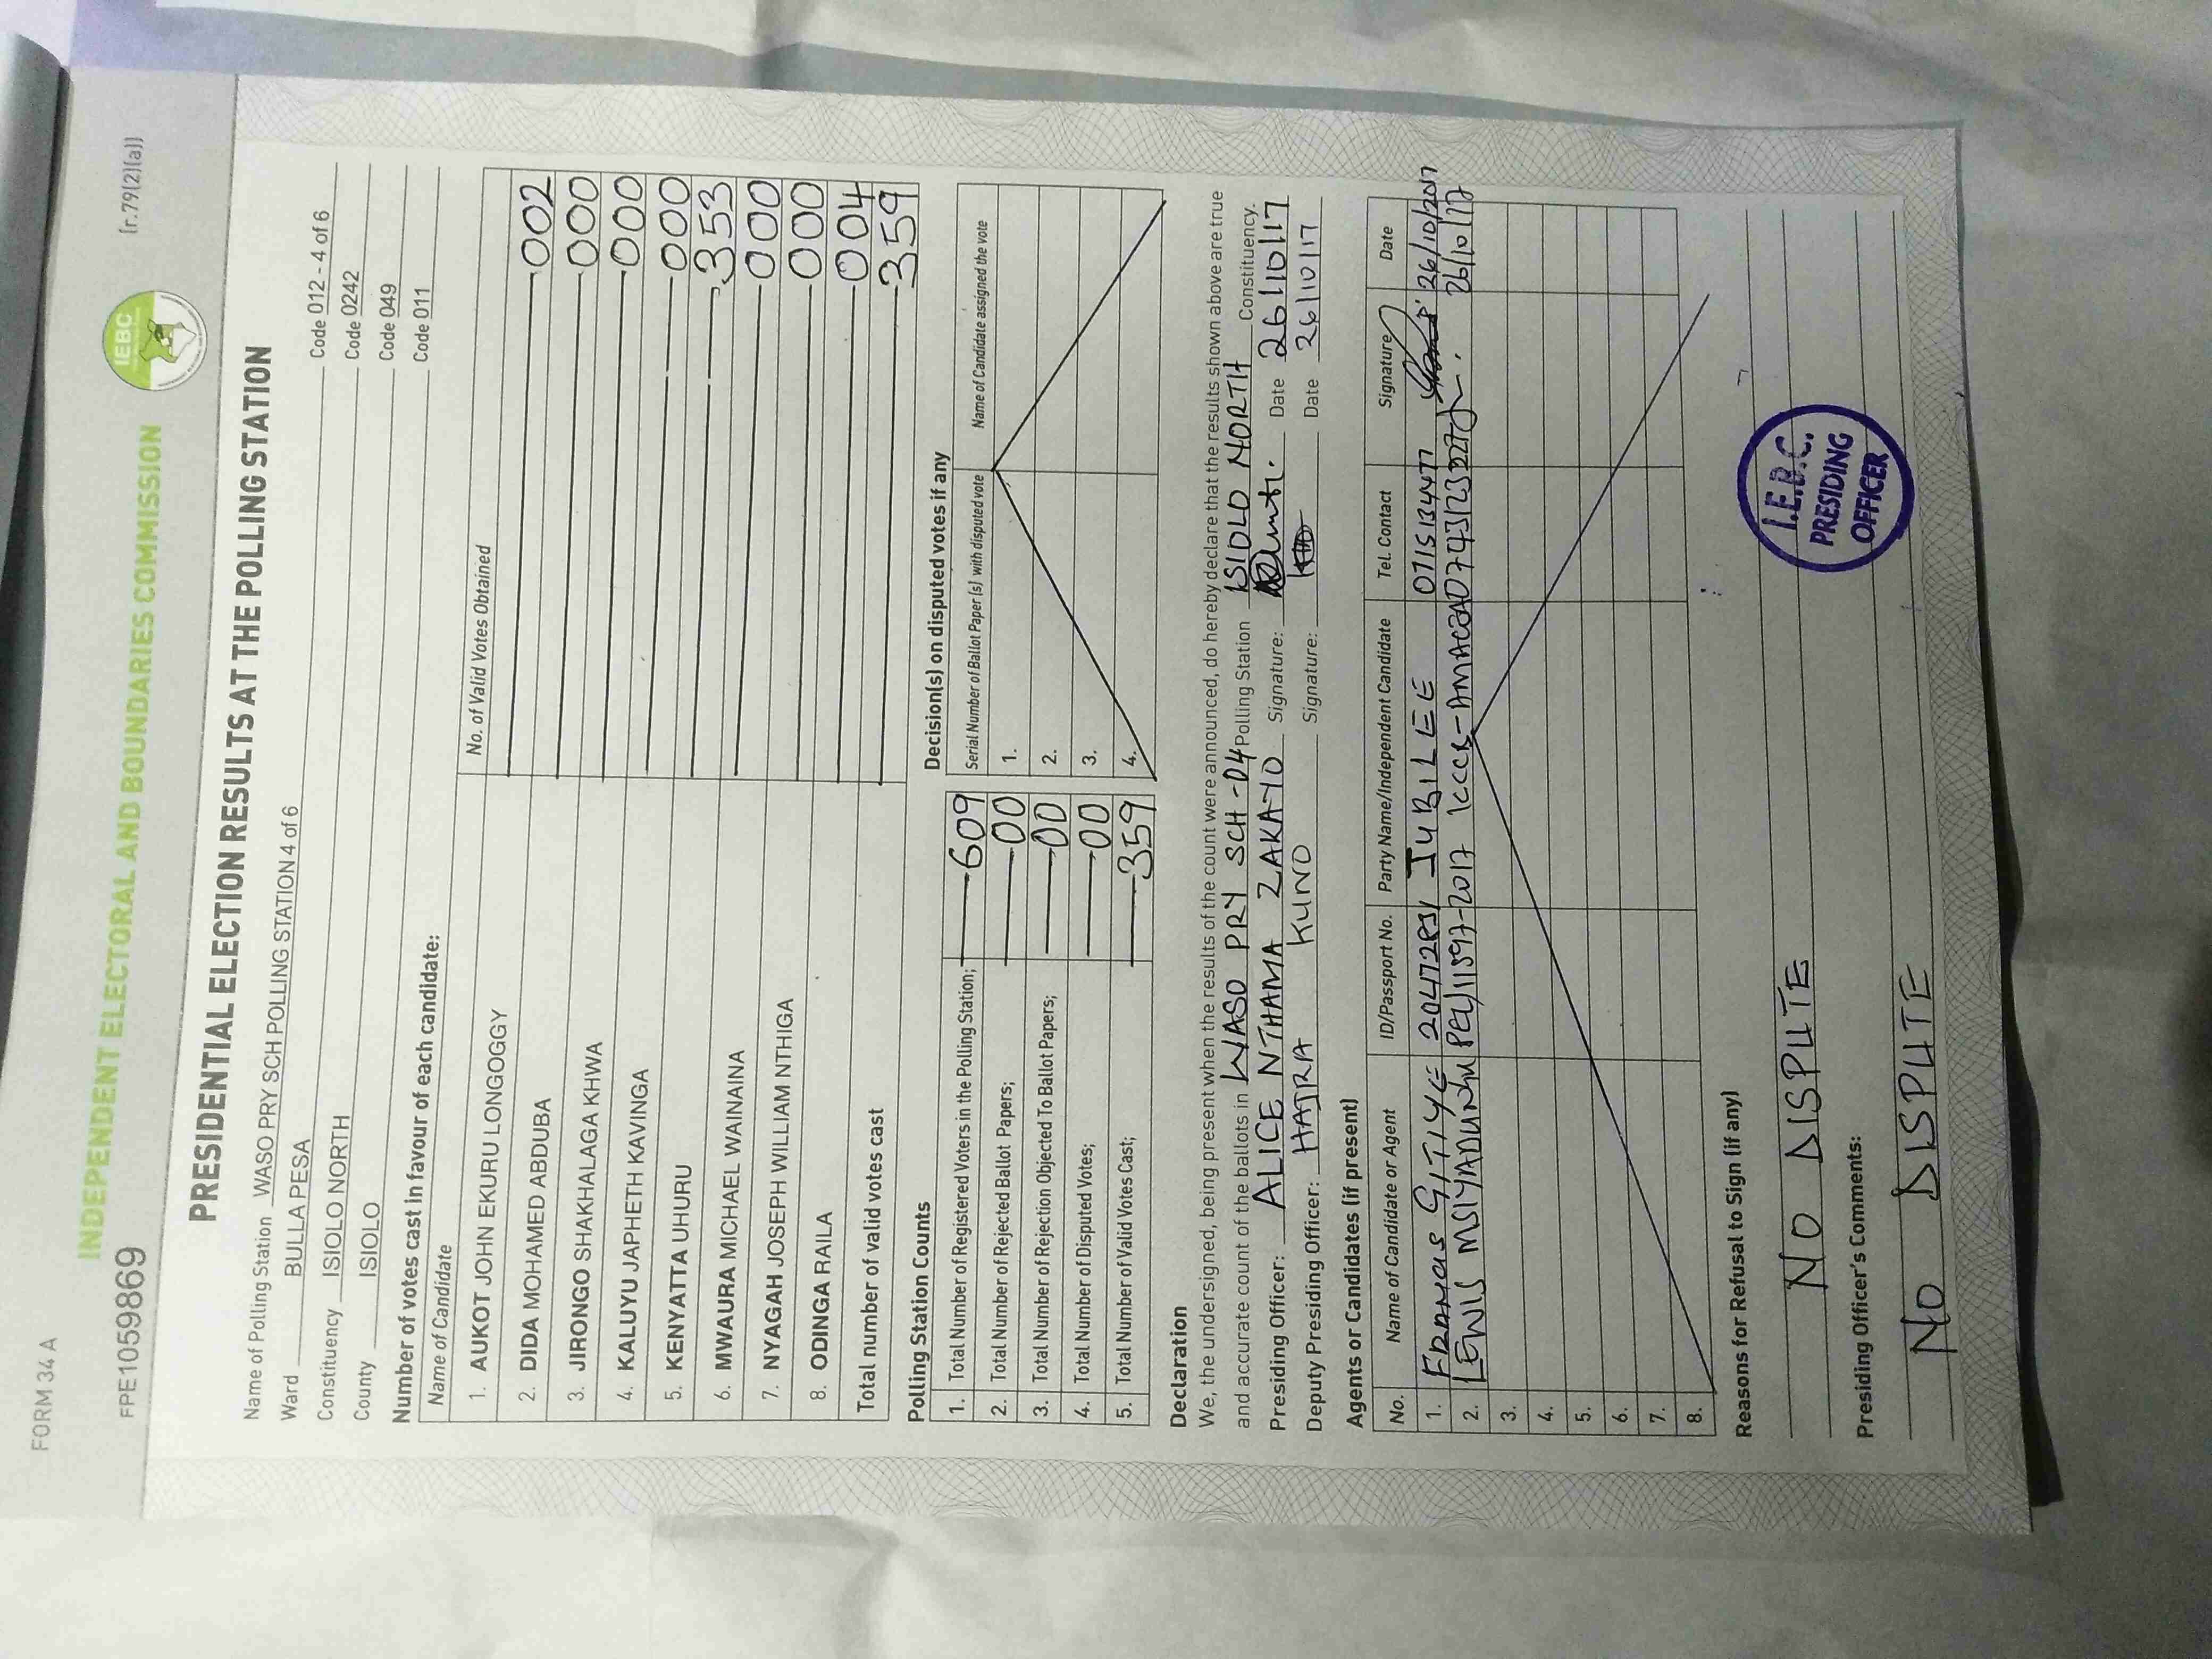 FORM 34 A
INDEPENDENT ELECTORAL AND BOUNDARIES COMMISSION
IEBC
FPE1059869 (r.79(2)(a))
PRESIDENTIAL ELECTION RESULTS AT THE POLLING STATION
Name of Polling Station WASO PRY SCH POLLING STATION 4 of 6 Code 012 - 4 of 6
Ward BULLA PESA Code 0242
Constituency ISIOLO NORTH Code 049
County ISIOLO Code 011
Number of votes cast in favour of each candidate:
Name of Candidate No. of Valid Votes Obtained
1. AUKOT JOHN EKURU LONGOGGY 002
2. DIDA MOHAMED ABDUBA 000
3. JIRONGO SHAKHALAGA KHWA 000
4. KALUYU JAPHETH KAVINGA 000
5. KENYATTA UHURU 353
6. MWAURA MICHAEL WAINAINA 000
7. NYAGAH JOSEPH WILLIAM NTHIGA 000
8. ODINGA RAILA 004
Total number of valid votes cast 359
Polling Station Counts
1. Total Number of Registered Voters in the Polling Station; 609
2. Total Number of Rejected Ballot Papers; 00
3. Total Number of Rejection Objected To Ballot Papers; 00
4. Total Number of Disputed Votes; 00
5. Total Number of Valid Votes Cast; 359
Decision(s) on disputed votes if any
Serial Number of Ballot Paper (s) with disputed vote Name of Candidate assigned the vote
1.
2.
3.
4.
Declaration
We, the undersigned, being present when the results of the count were announced, do hereby declare that the results shown above are true
and accurate count of the ballots in WASO PRY SCH - 04 Polling Station ISIOLO NORTH Constituency.
Presiding Officer: ALICE NTHAMA ZAKAYO Signature: Date 26/10/17
Deputy Presiding Officer: HAJRA KUNO Signature: Date 26/10/17
Agents or Candidates (if present)
No. Name of Candidate or Agent ID/Passport No. Party Name/Independent Candidate Tel. Contact Signature Date
1. FRANCIS GITIYE JUBILEE 0715134477 26/10/2017
2. LEWIS 26/10/17
3.
4.
5.
6.
7.
8.
Reasons for Refusal to Sign (if any)
NO DISPUTE
Presiding Officer's Comments:
NO DISPUTE
I.E.B.C.
PRESIDING
OFFICER